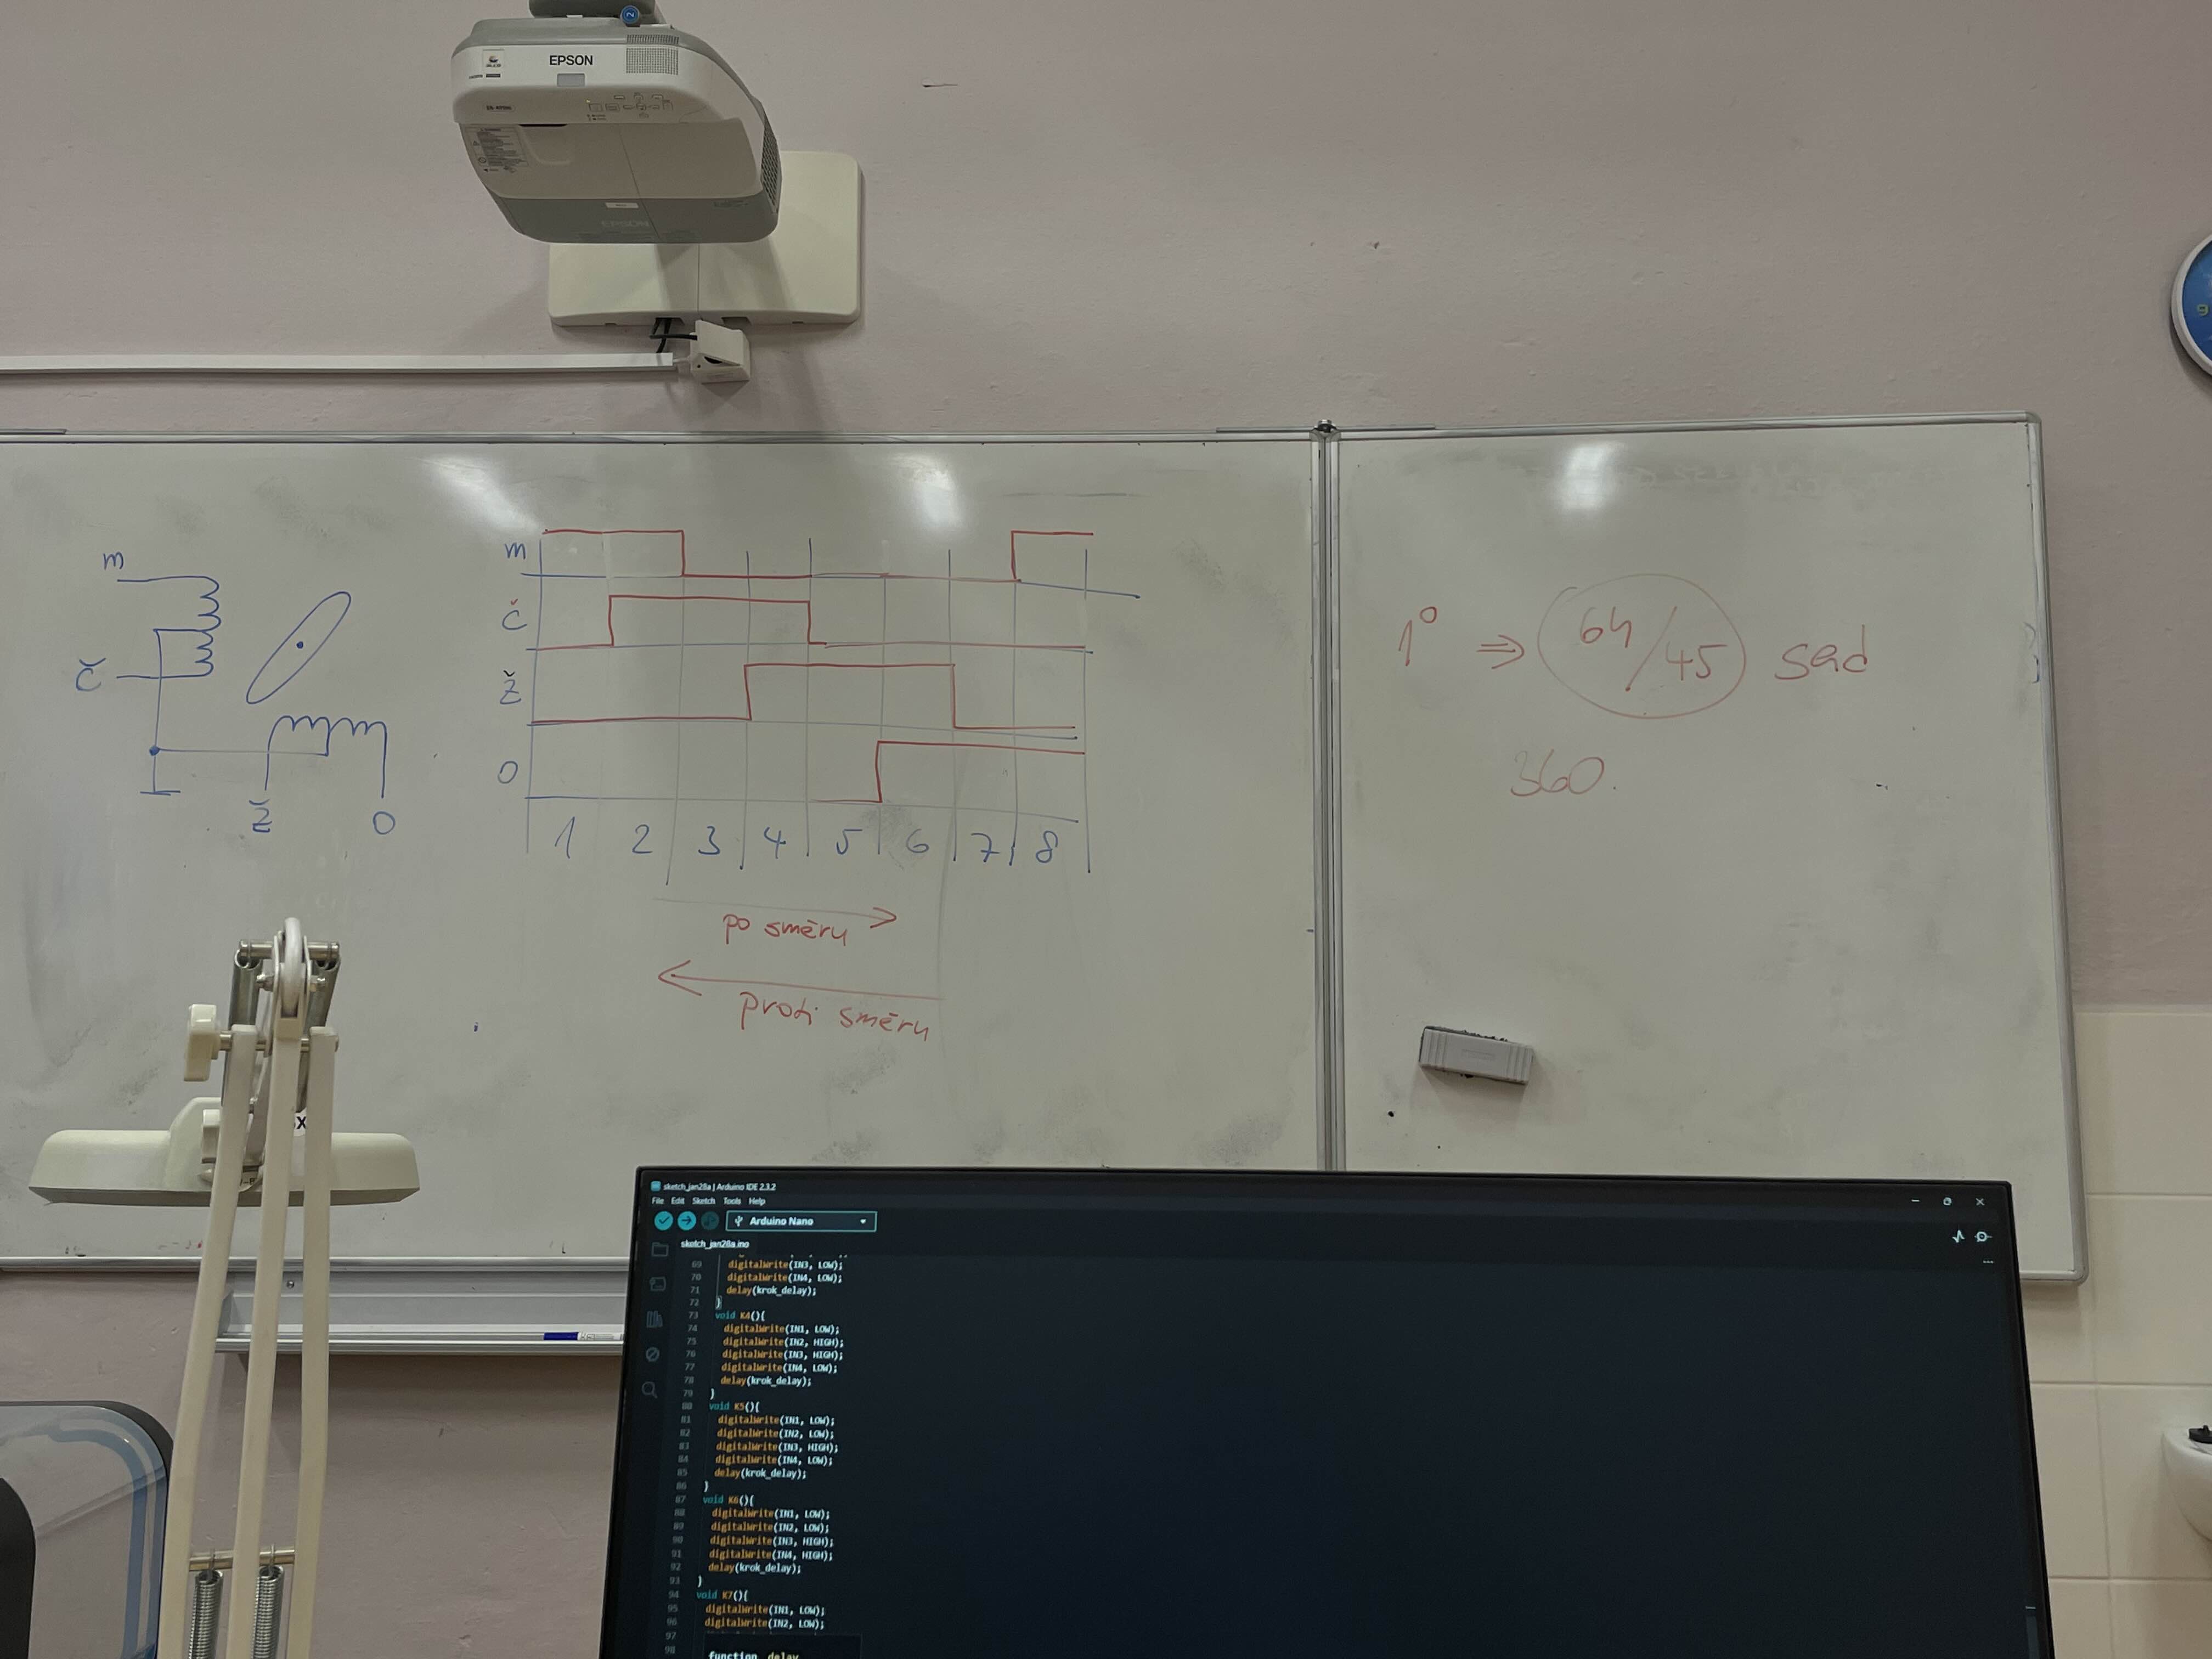 2
EPSON
EPSON
9
m
m
č
č
ž
O
ž
O
1 2 3 4 5 6 7 8
po směru
proti směru
1° ⇒ 64/45 sad
360.
sketch_jan28a | Arduino IDE 2.3.2
File Edit Sketch Tools Help
Arduino Nano
sketch_jan28a.ino
69 digitalWrite(IN3, LOW);
70 digitalWrite(IN4, LOW);
71 delay(krok_delay);
72 }
73 void K4(){
74 digitalWrite(IN1, LOW);
75 digitalWrite(IN2, HIGH);
76 digitalWrite(IN3, HIGH);
77 digitalWrite(IN4, LOW);
78 delay(krok_delay);
79 }
80 void K5(){
81 digitalWrite(IN1, LOW);
82 digitalWrite(IN2, LOW);
83 digitalWrite(IN3, HIGH);
84 digitalWrite(IN4, LOW);
85 delay(krok_delay);
86 }
87 void K6(){
88 digitalWrite(IN1, LOW);
89 digitalWrite(IN2, LOW);
90 digitalWrite(IN3, HIGH);
91 digitalWrite(IN4, HIGH);
92 delay(krok_delay);
93 }
94 void K7(){
95 digitalWrite(IN1, LOW);
96 digitalWrite(IN2, LOW);
97
98
function delay